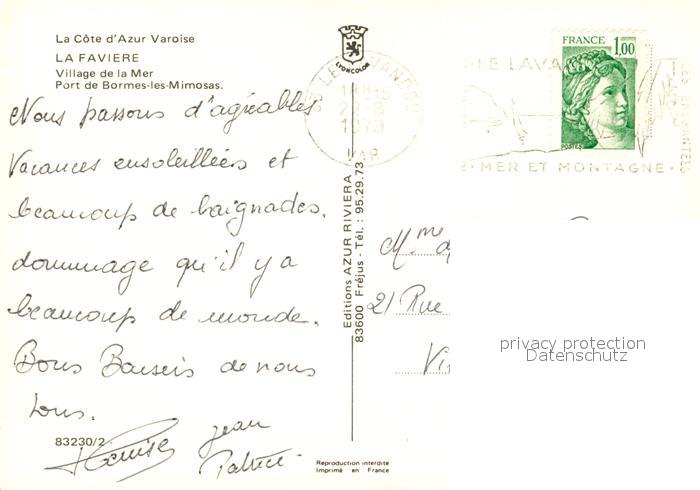 La Côte d'Azur Varoise
LA FAVIERE
Village de la Mer
Port de Bormes-les-Mimosas.
Nous passons d'agréables
Vacances ensoleillées et
beaucoup de baignades.
dommage qu'il y a
beaucoup de monde.
Bons Baisers de nous
tous.
Louise Jean
Patrice
83230/2
LYONCOLOR
Editions AZUR RIVIERA
83600 Fréjus - Tél. : 95.29.73
Reproduction interdite
Imprimé en France
FRANCE
1,00
POSTES
LE LAVANDOU
1979
VAR
LE LAVA
MER ET MONTAGNE
Mme
21 Rue
privacy protection
Datenschutz